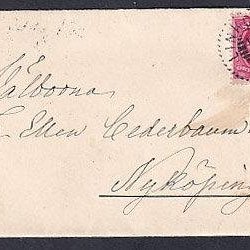 Välborna
Ellen Cederbaum
Nyköping